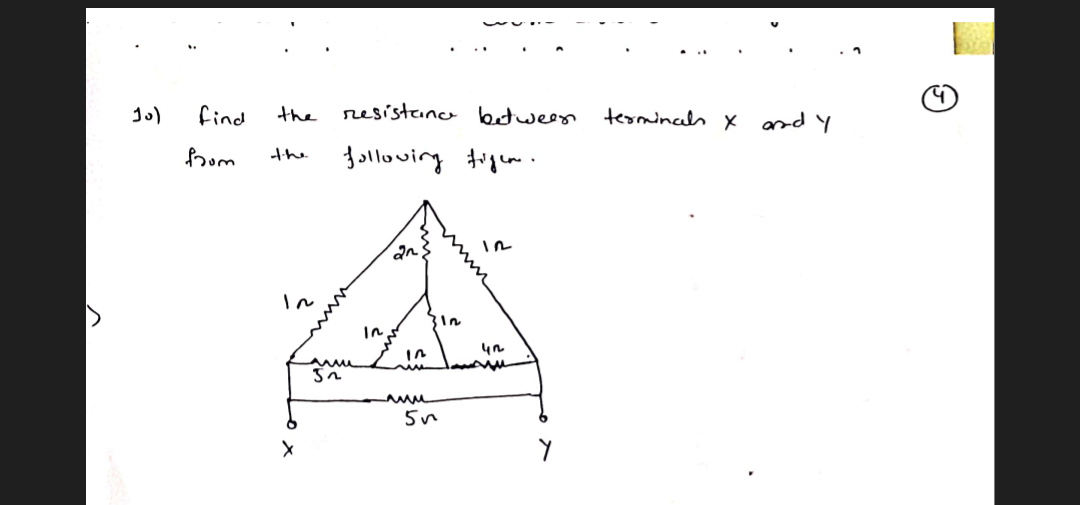 ④
10) find the resistance between terminals X and Y
from the following figure.
2Ω
1Ω
1Ω
1Ω
1Ω
1Ω
4Ω
3Ω
5Ω
X
Y